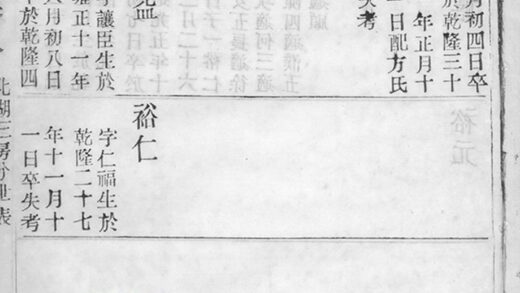 月初四日卒
於乾隆三十
年正月十
一日配方氏
失考
讓臣生於
正十一年
月初八日
於乾隆四
裕仁
字仁福生於
乾隆二十七
年十一月十
一日卒失考
北湖三房分世表